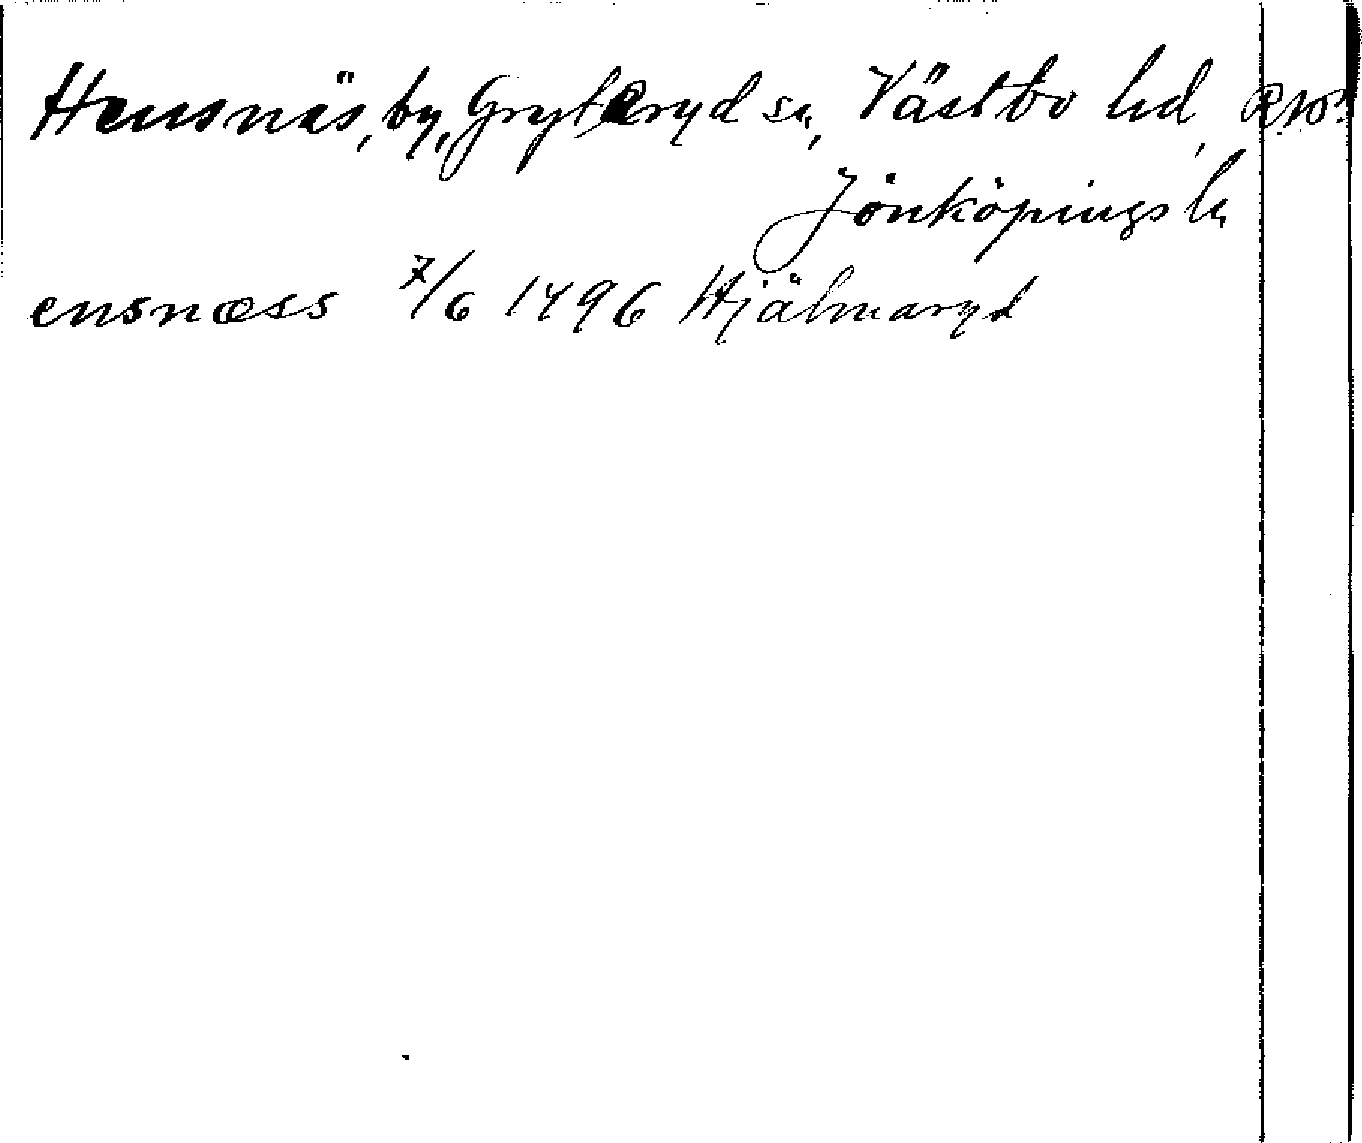 Hensnäs, by, Gryteryd sn, Västbo hd,
Jönköpings ln
ensnæss 7/6 1496 Hjälmaryd